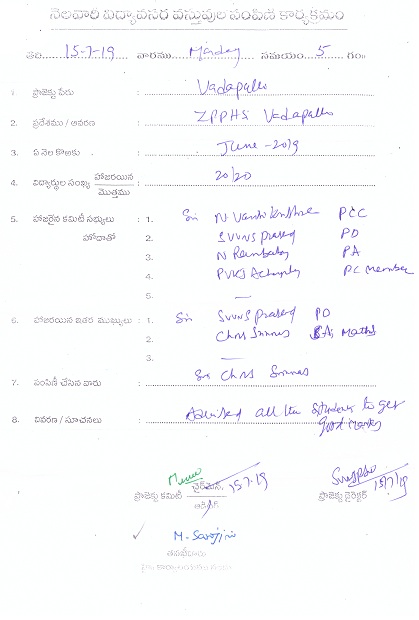 నెలవారీ విద్యావసర వస్తువుల పంపిణీ కార్యక్రమం
తేది 15-7-19 వారము Monday సమయం 5 గం॥
1. ప్రాజెక్టు పేరు Vadapalli
2. ప్రదేశము / ఆవరణ ZPPHS Vadapalli
3. ఏ నెల కొఱకు June - 2019
4. విద్యార్థుల సంఖ్య హాజరయిన / మొత్తము 20/20
5. హాజరైన కమిటీ సభ్యులు : 1. Sri N PCC
హోదాతో 2. SVVNS Prasad PD
3. N Rambabu PA
4. PVKS PC Member
5. —
6. హాజరయిన ఇతర ముఖ్యులు : 1. Sri SVVNS Prasad PD
2. Ch NS Srinivas SA, Maths
3. —
7. పంపిణీ చేసిన వారు : Sri Ch NS Srinivas
8. వివరణ / సూచనలు : Advised all the students to get
good Marks
15.7.19
ప్రాజెక్టు కమిటీ ఛైర్మెన్, ప్రాజెక్టు డైరెక్టర్ 15/7/19
M. Sarojini